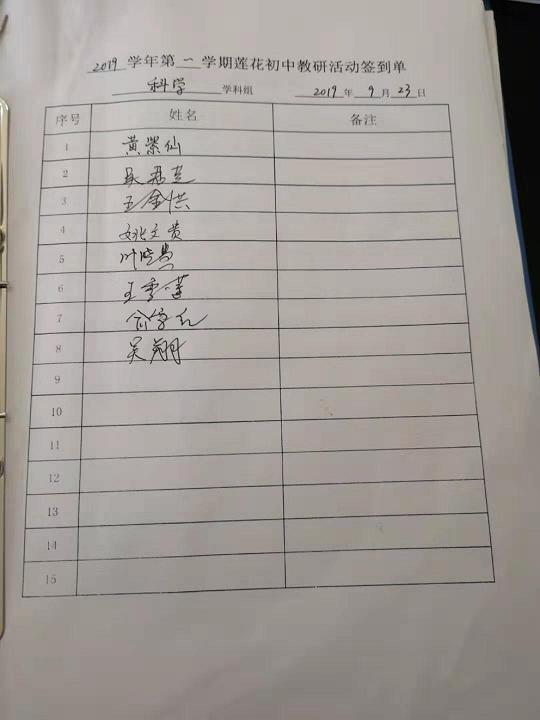 2019 学年第 一 学期莲花初中教研活动签到单
科学 学科组 2019 年 9 月 23 日
序号 姓名 备注
1 黄紫仙
2
3 王金洪
4 姚文贵
5 叶
6 王雪莲
7 俞
8 吴翔
9
10
11
12
13
14
15